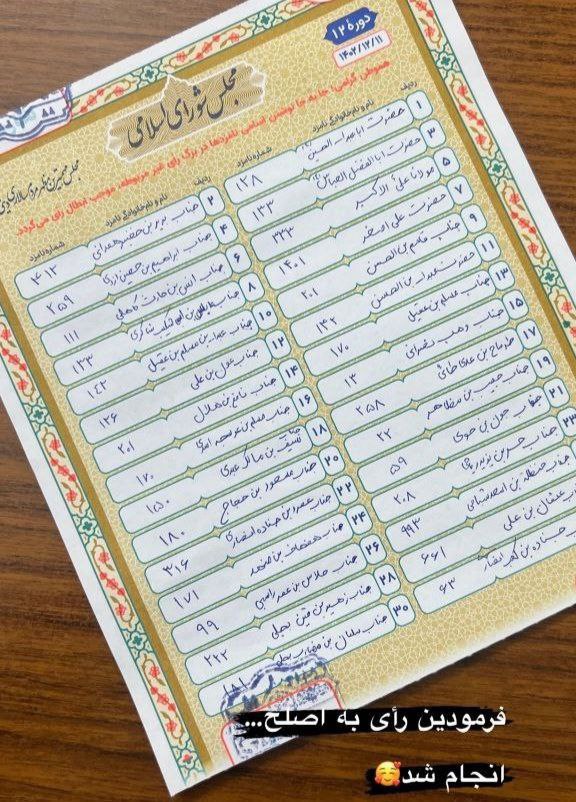 دورهٔ ۱۲
۱۴۰۲/۱۲/۱۱
مجلس شورای اسلامی
هموطن گرامی؛ جا به جا نوشتن اسامی نامزدها در برگ رأی غیر مربوطه، موجب ابطال رأی می‌گردد.
ردیف
نام و نام‌خانوادگی نامزد
شماره نامزد
۱ حضرت اباعبدالله الحسین ۱۲۸
۳ حضرت اباالفضل العباس ۱۳۳
۵ مولانا علی الاکبر ۳۳۳
۷ حضرت علی اصغر ۱۴۰۱
۹ جناب قاسم بن الحسن ۲۰۱
۱۱ حضرت عبدالله بن الحسن ۱۴۲
۱۳ جناب مسلم بن عقیل ۱۷۰
۱۵ جناب وهب نصرانی ۱۳
۱۷ طرماح بن عدی طائی ۲۵۸
۱۹ جناب حبیب بن مظاهر ۲۲
۲۱ جناب جون بن حوی ۵۹
۲۳ جناب حر بن یزید ریاحی ۲۰۸
جناب حنظلة بن اسعد شبامی ۹۹۳
عثمان بن علی ۶۶۱
جناده بن کعب انصاری ۶۳
ردیف
نام و نام‌خانوادگی نامزد
شماره نامزد
۲ جناب بریر بن خضیر همدانی ۴۱۲
۴ جناب ابراهیم بن حصین ازدی ۲۵۹
۶ جناب انس بن حارث کاهلی ۱۱۱
۸ جناب ۱۳۳
۱۰ جناب عبدالله بن مسلم بن عقیل ۱۴۳
۱۲ جناب عون بن علی ۱۲۶
۱۴ جناب نافع بن هلال ۲۰۱
۱۶ جناب مسلم بن عوسجه اسدی ۱۷۰
۱۸ جناب سیف بن مالک عبدی ۱۵۰
۲۰ جناب مسعود بن حجاج ۱۸۰
۲۲ جناب عمرو بن جناده انصاری ۳۱۶
۲۴ جناب ۱۷۱
۲۶ جناب حلاس بن عمرو راسبی ۹۹
۲۸ جناب زهیر بن قین بجلی ۲۲۲
۳۰ جناب سلمان بن مضارب بجلی
فرمودین رأی به اصلح...
انجام شد🥰